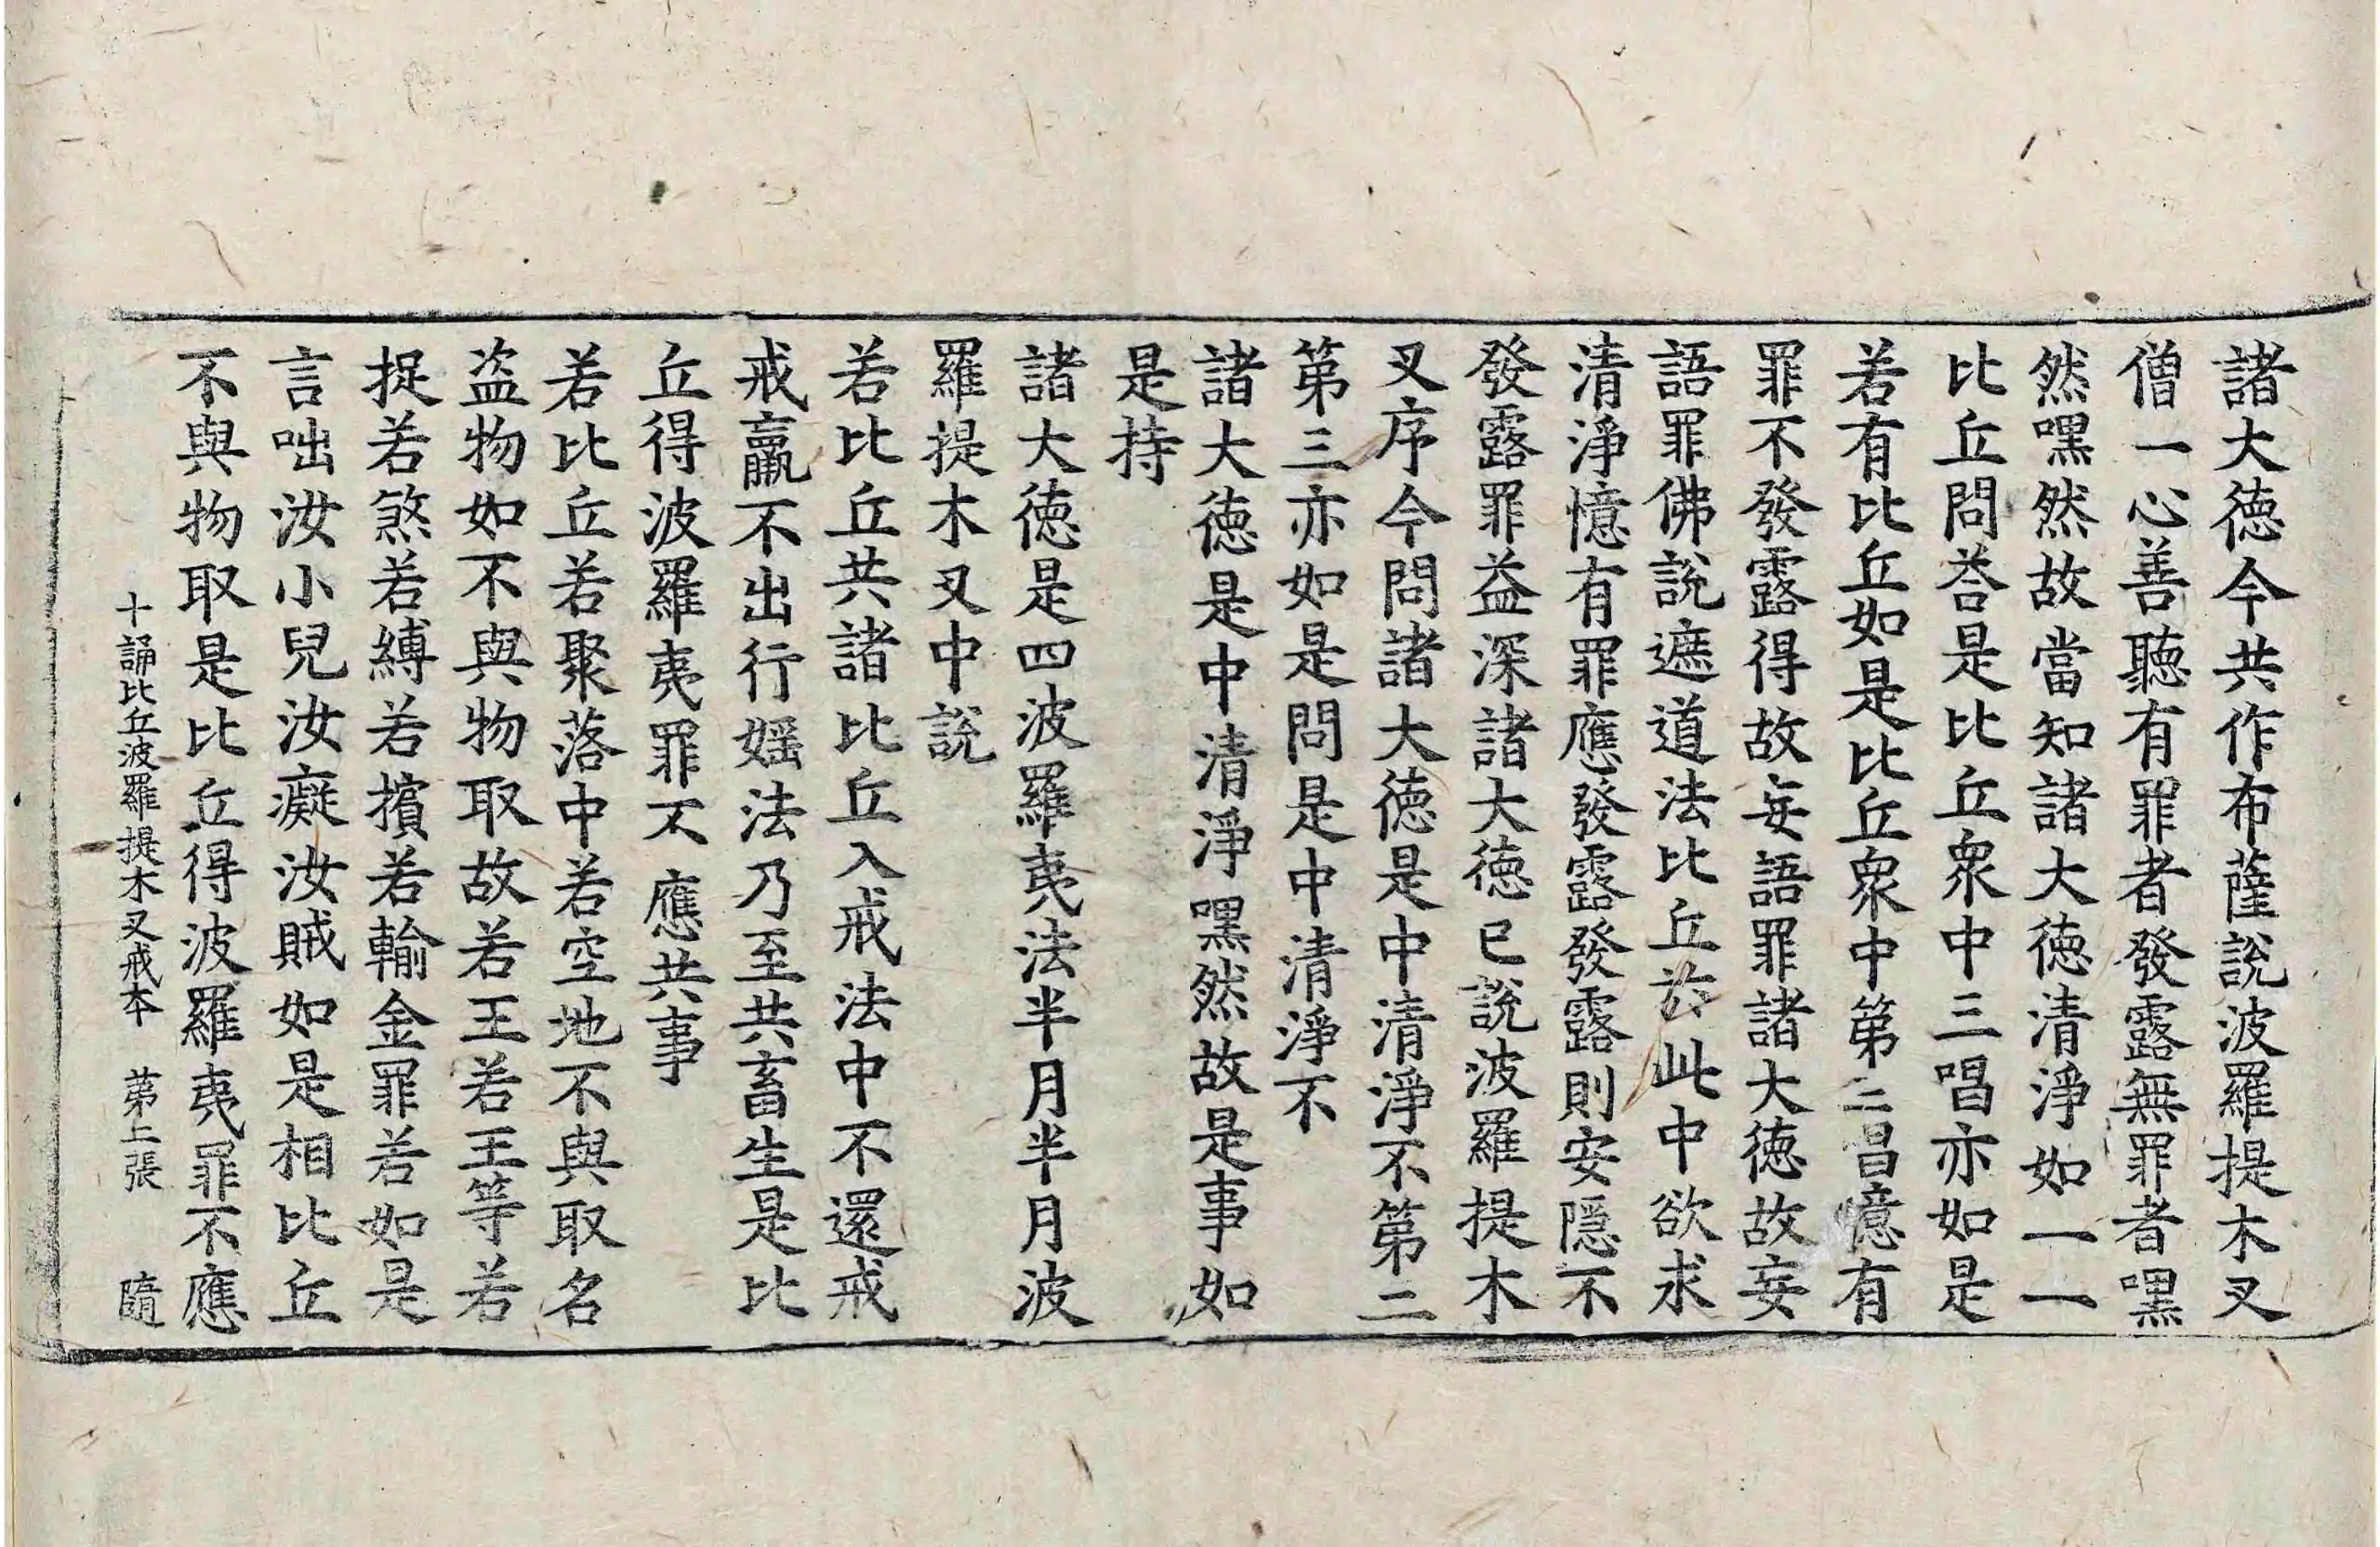 諸大徳今共作布薩說波羅提木叉
僧一心善聽有罪者發露無罪者嘿
然嘿然故當知諸大徳清淨如一一
比丘問荅是比丘衆中三唱亦如是
若有比丘如是比丘衆中第三唱憶有
罪不發露得故妄語罪諸大徳故妄
語罪佛說遮道法比丘於此中欲求
清淨憶有罪應發露發露則安隱不
發露罪益深諸大徳已說波羅提木
叉序今問諸大徳是中清淨不第二
第三亦如是問是中清淨不
諸大徳是中清淨嘿然故是事如
是持
諸大徳是四波羅夷法半月半月波
羅提木叉中說
若比丘共諸比丘入戒法中不還戒
戒羸不出行婬法乃至共畜生是比
丘得波羅夷罪不應共事
若比丘若聚落中若空地不與取名
盗物如不與物取故若王若王等若
捉若煞若縛若擯若輸金罪若如是
言咄汝小兒汝癡汝賊如是相比丘
不與物取是比丘得波羅夷罪不應
十誦比丘波羅提木叉戒本 第二張 隨